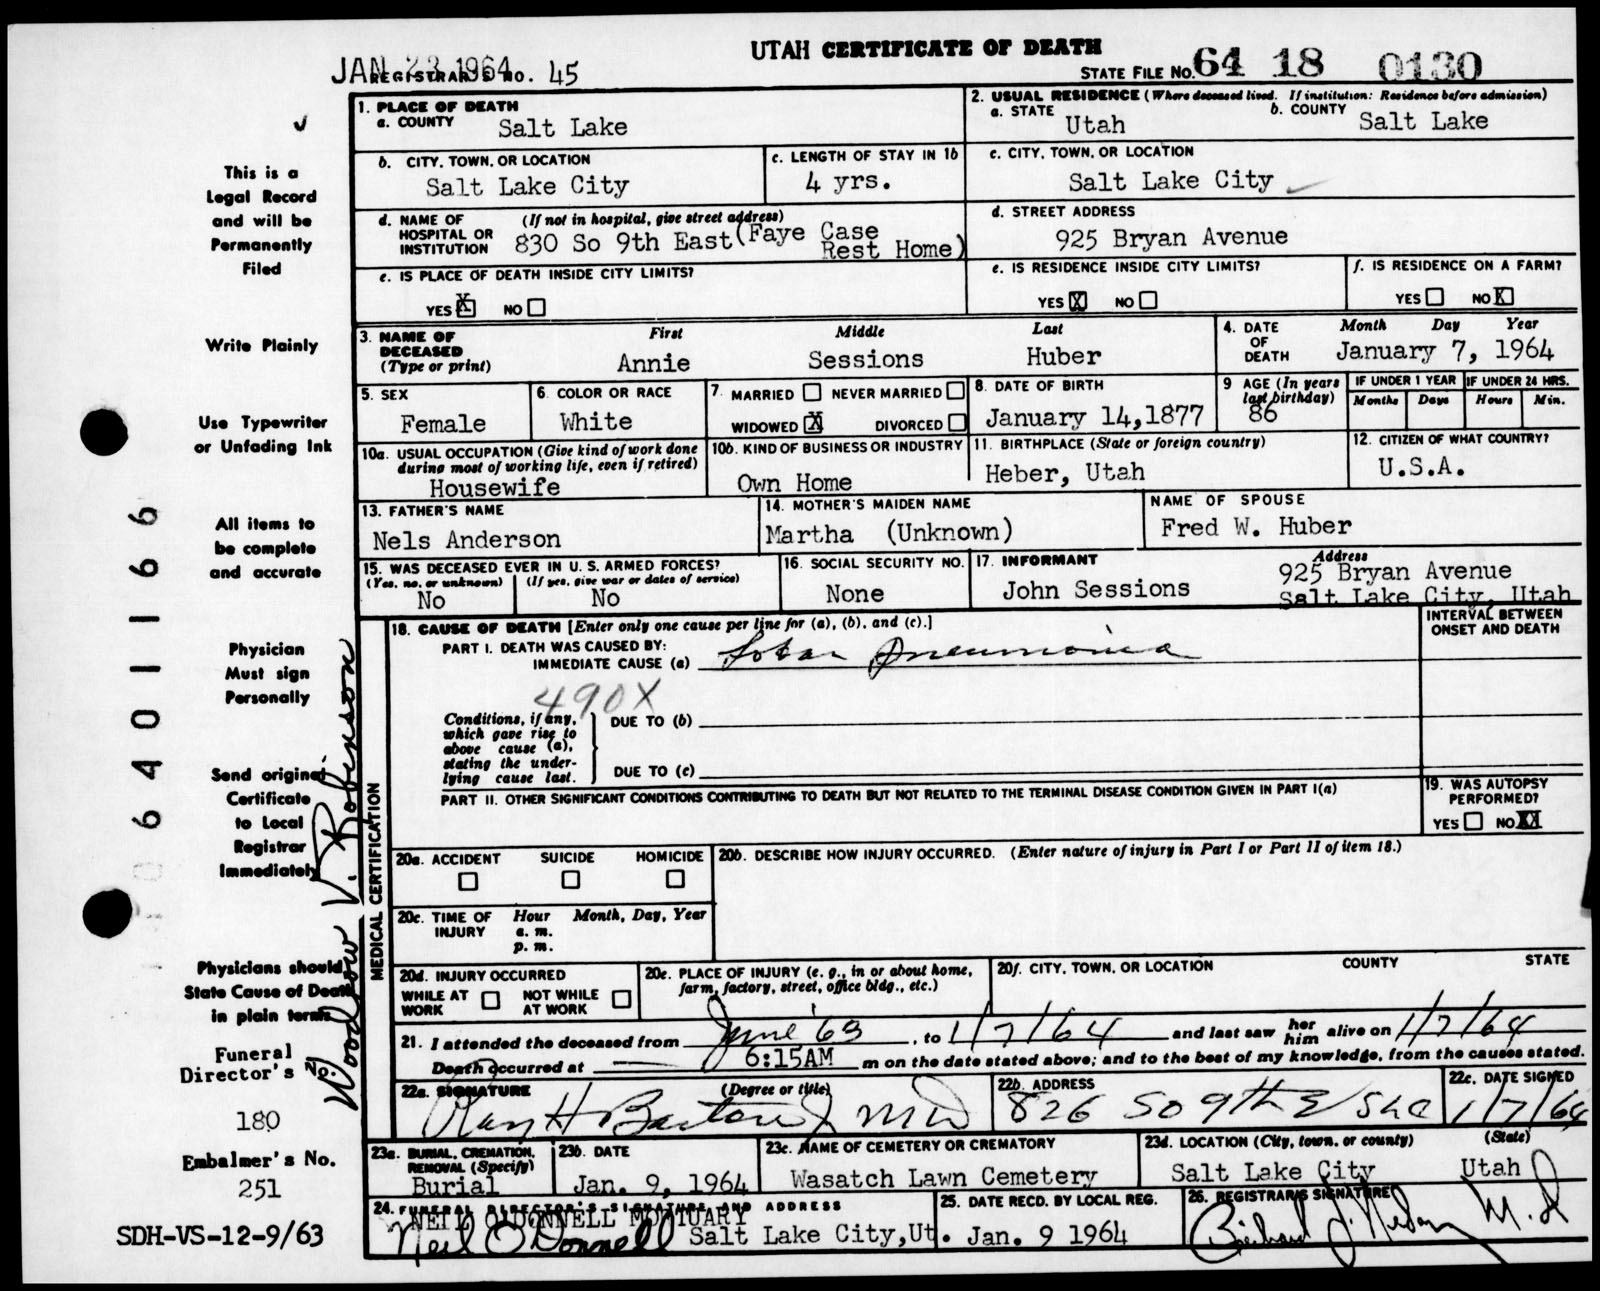 UTAH CERTIFICATE OF DEATH
JAN 23 1964
REGISTRAR'S NO. 45
STATE FILE NO. 64 18 0130
1. PLACE OF DEATH
a. COUNTY Salt Lake
2. USUAL RESIDENCE (Where deceased lived. If institution: Residence before admission)
a. STATE Utah b. COUNTY Salt Lake
b. CITY, TOWN, OR LOCATION
Salt Lake City
c. LENGTH OF STAY IN 1b
4 yrs.
c. CITY, TOWN, OR LOCATION
Salt Lake City
d. NAME OF HOSPITAL OR INSTITUTION (If not in hospital, give street address)
830 So 9th East (Faye Case Rest Home)
d. STREET ADDRESS
925 Bryan Avenue
e. IS PLACE OF DEATH INSIDE CITY LIMITS?
YES X NO
e. IS RESIDENCE INSIDE CITY LIMITS?
YES X NO
f. IS RESIDENCE ON A FARM?
YES NO X
3. NAME OF DECEASED (Type or print)
First Middle Last
Annie Sessions Huber
4. DATE OF DEATH
Month Day Year
January 7, 1964
5. SEX
Female
6. COLOR OR RACE
White
7. MARRIED NEVER MARRIED
WIDOWED X DIVORCED
8. DATE OF BIRTH
January 14,1877
9 AGE (In years last birthday)
86
IF UNDER 1 YEAR
Months Days
IF UNDER 24 HRS.
Hours Min.
10a. USUAL OCCUPATION (Give kind of work done during most of working life, even if retired)
Housewife
10b. KIND OF BUSINESS OR INDUSTRY
Own Home
11. BIRTHPLACE (State or foreign country)
Heber, Utah
12. CITIZEN OF WHAT COUNTRY?
U.S.A.
13. FATHER'S NAME
Nels Anderson
14. MOTHER'S MAIDEN NAME
Martha (Unknown)
NAME OF SPOUSE
Fred W. Huber
15. WAS DECEASED EVER IN U. S. ARMED FORCES?
(Yes, no, or unknown) (If yes, give war or dates of service)
No No
16. SOCIAL SECURITY NO.
None
17. INFORMANT
John Sessions
Address
925 Bryan Avenue
Salt Lake City, Utah
MEDICAL CERTIFICATION
18. CAUSE OF DEATH [Enter only one cause per line for (a), (b), and (c).]
INTERVAL BETWEEN ONSET AND DEATH
PART I. DEATH WAS CAUSED BY:
IMMEDIATE CAUSE (a) Lobar Pneumonia
490X
Conditions, if any, which gave rise to above cause (a), stating the underlying cause last.
DUE TO (b)
DUE TO (c)
PART II. OTHER SIGNIFICANT CONDITIONS CONTRIBUTING TO DEATH BUT NOT RELATED TO THE TERMINAL DISEASE CONDITION GIVEN IN PART I(a)
19. WAS AUTOPSY PERFORMED?
YES NO XX
20a. ACCIDENT SUICIDE HOMICIDE
20b. DESCRIBE HOW INJURY OCCURRED. (Enter nature of injury in Part I or Part II of item 18.)
20c. TIME OF INJURY Hour Month, Day, Year
a. m.
p. m.
20d. INJURY OCCURRED
WHILE AT WORK NOT WHILE AT WORK
20e. PLACE OF INJURY (e. g., in or about home, farm, factory, street, office bldg., etc.)
20f. CITY, TOWN, OR LOCATION COUNTY STATE
21. I attended the deceased from June '63, to 1/7/64 and last saw her him alive on 1/7/64
Death occurred at 6:15AM m on the date stated above; and to the best of my knowledge, from the causes stated.
22a. SIGNATURE (Degree or title)
Ray H Barton Jr MD
22b. ADDRESS
826 So 9th E SLC
22c. DATE SIGNED
1/7/64
23a. BURIAL, CREMATION, REMOVAL (Specify)
Burial
23b. DATE
Jan. 9, 1964
23c. NAME OF CEMETERY OR CREMATORY
Wasatch Lawn Cemetery
23d. LOCATION (City, town, or county) (State)
Salt Lake City Utah
24. FUNERAL DIRECTOR'S SIGNATURE AND ADDRESS
NEIL O'DONNELL MORTUARY
Neil O'Donnell Salt Lake City,Ut.
25. DATE RECD. BY LOCAL REG.
Jan. 9 1964
26. REGISTRAR'S SIGNATURE
M.D
This is a
Legal Record
and will be
Permanently
Filed
Write Plainly
Use Typewriter
or Unfading Ink
All items to
be complete
and accurate
Physician
Must sign
Personally
Send original
Certificate
to Local
Registrar
Immediately
Physicians should
State Cause of Death
in plain terms
Funeral
Director's No.
180
Embalmer's No.
251
SDH-VS-12-9/63
Woodrow V. Robinson
6401166